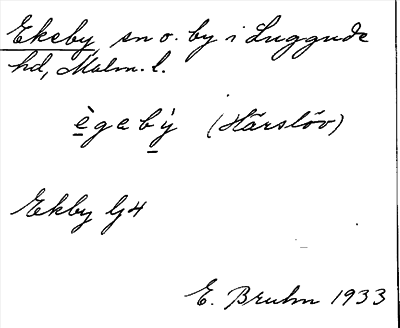 Ekeby sn o. by i Luggude
hd, Malm. l.
ègabý (Härslöv)
Ekby Gj4
E. Bruhn 1933